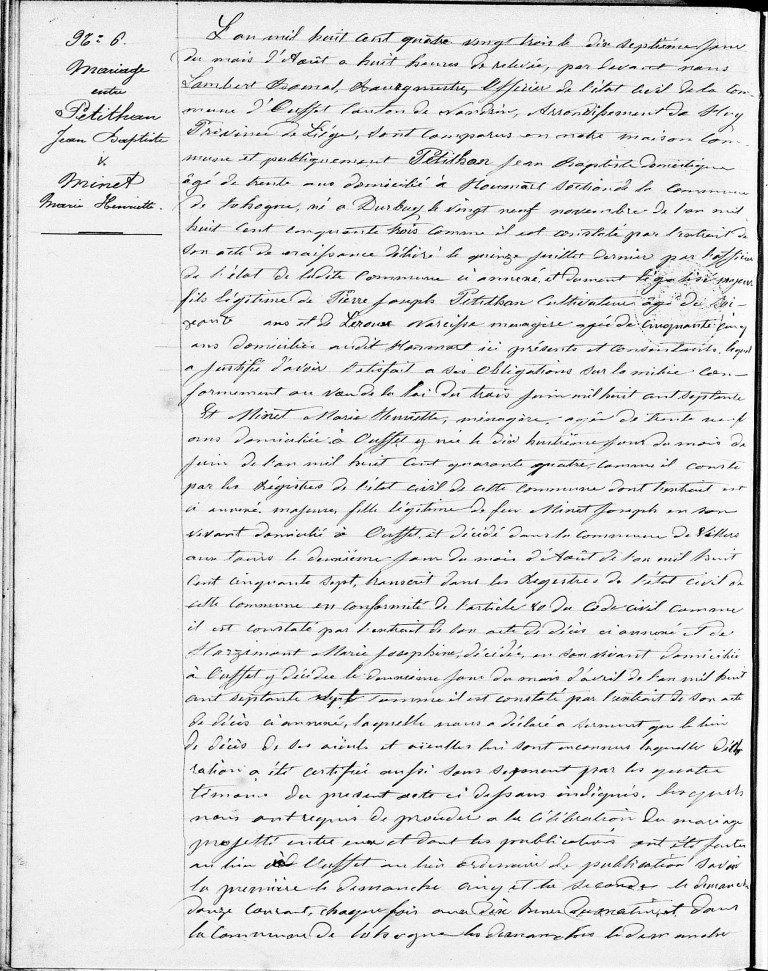 N° 6.
Mariage
entre
Petithan
Jean Baptiste
&
Minet
Marie Henriette.
L'an mil huit cent quatre vingt trois le dix septième jour
du mois d'Août a huit heures de relevée, par devant nous
Lambert Bourgmestre, Officier de l'état civil de la Com-
mune d'Ouffet Canton de Nandrin, Arrondissement de Huy
Province de Liège, sont comparus en notre maison Com-
mune et publiquement Petithan Jean Baptiste domestique
âgé de trente ans domicilié à Houmart Section de la Commune
de tohogne, né a Durbuy le vingt neuf novembre de l'an mil
huit cent cinquante trois comme il est constaté par l'extrait de
son acte de naissance délivré le quinze juillet dernier par l'officier
de l'état de ladite Commune ci annexé et dument légalisé majeur
fils légitime de Pierre Joseph Petithan Cultivateur âgé de soi-
xante ans et de Leroux Narcisse menagère agée de cinquante cinq
ans domiciliés audit Houmart ici présents et consentants, lequel
a justifié d'avoir satisfait a ses obligations sur la milice con-
formement au vœu de la loi du trois juin mil huit cent septante
Et Minet Marie Henriette, ménagère, agée de trente neuf
ans domiciliée à Ouffet y née le dix huitième jour du mois de
juin de l'an mil huit cent quarante quatre, comme il conste
par les Régistres de l'état civil de cette commune dont l'extrait est
ci annexé, majeure, fille légitime de feu Minet Joseph en son
vivant domicilié à Ouffet, et décédé dans la commune de Villers
aux tours le deuxième jour du mois d'Août de l'an mil huit
cent cinquante sept, transcrit dans les Registres de l'état civil de
cette Commune en conformité de l'article 80 du Code civil comme
il est constaté par l'extrait de son acte de décès ci annexé et de
Marie Josephine, décédée, en son vivant domiciliée
à Ouffet y décédée le douzième jour du mois d'avril de l'an mil huit
cent septante sept comme il est constaté par l'extrait de son acte
de décès ci annexé, laquelle nous a déclaré a serment que le lieu
de décès de ses aïeuls et aïeules lui sont inconnus laquelle décla-
ration a été certifiée aussi sous serment par les quatre
témoins du present acte ci dessous indiqués. Lesquels
nous ont requis de procéder a la célébration du mariage
projetté entre eux et dont les publications ont été faites
au lieu d'Ouffet au lieu ordinaire de publication savoir
la première le dimanche cinq et la seconde le dimanche
douze courant, chaque fois a dix heures du matin, et dans
la Commune de tohogne les dimanches le dimanche